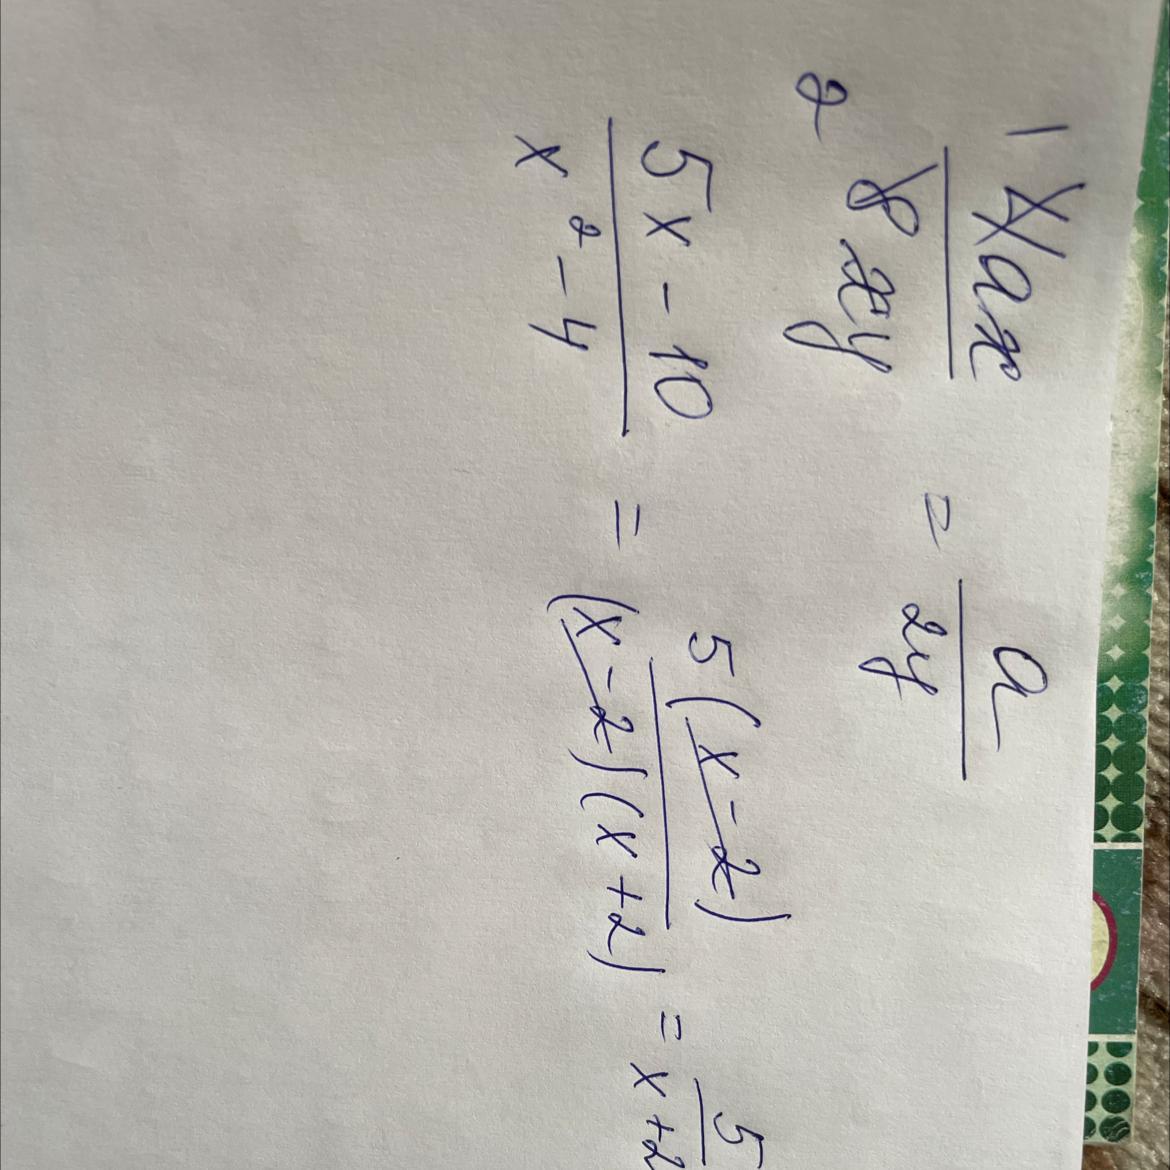 1 4ax / 2 8xy = a / 2y
5x - 10 / x² - 4 = 5(x - 2) / (x - 2)(x + 2) = 5 / x + 2